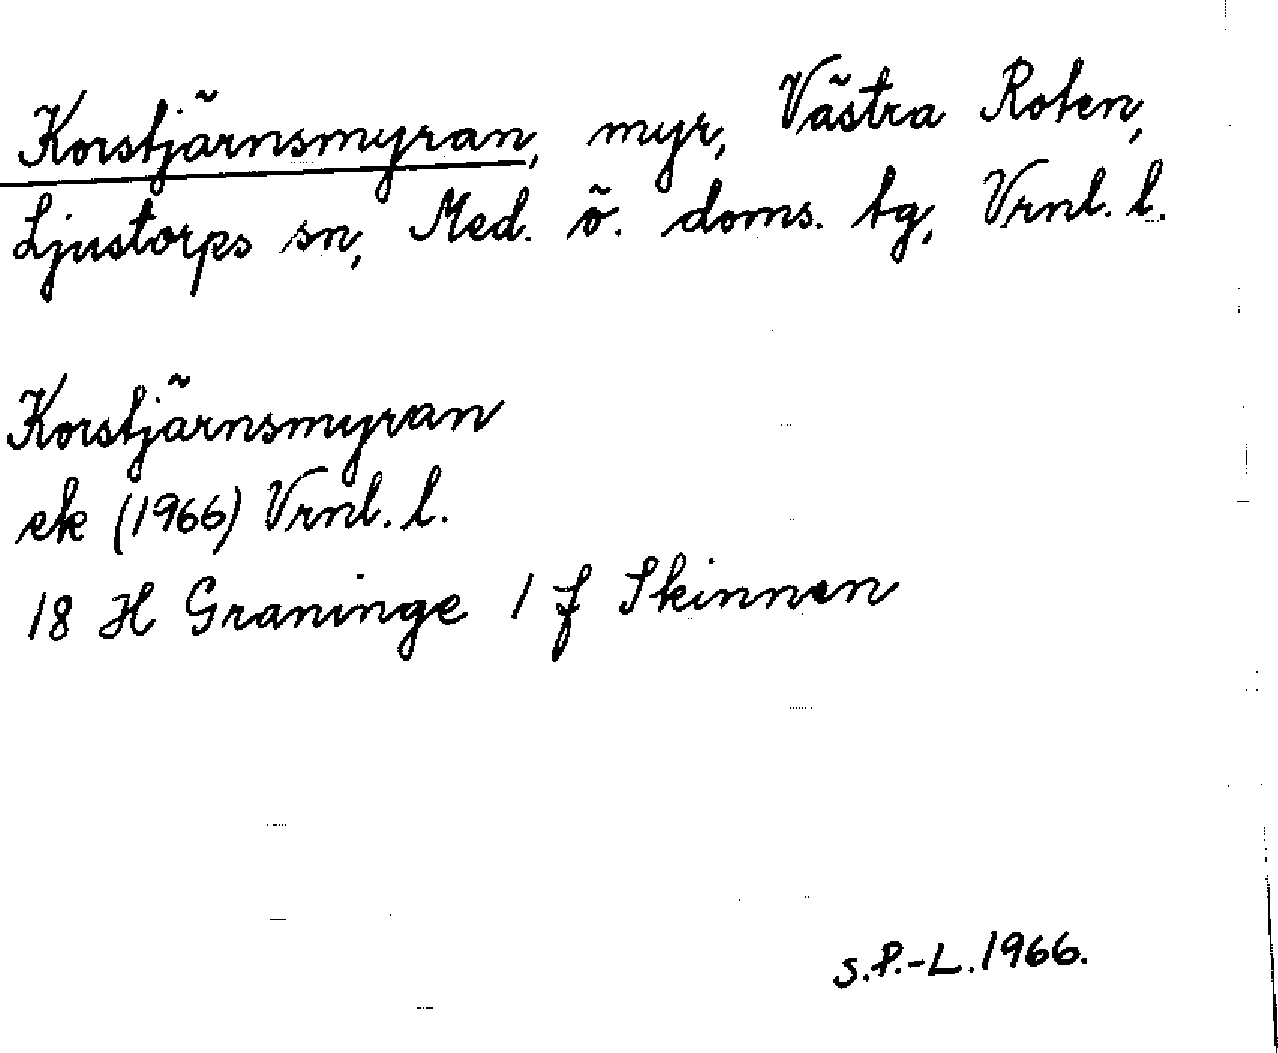 Korstjärnsmyran, myr, Västra Roten,
Ljustorps sn, Med. ö. doms. tg, Vrnl. l.
Korstjärnsmyran
ek (1966) Vrnl. l.
18 H Graninge 1 f Skinnen
S.P.-L. 1966.